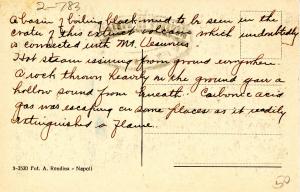 2-783
A basin of boiling black mud to be seen in the
crater of this extinct volcano which undoubtedly
is connected with Mt. Vesuvius.
Hot steam issuing from ground everywhere.
A rock thrown heavily on the ground gave a
hollow sound from beneath. Carbonic acid
gas was escaping in some places as it readily
extinguished a flame.
9-3530 Fot. A. Rendina - Napoli
50